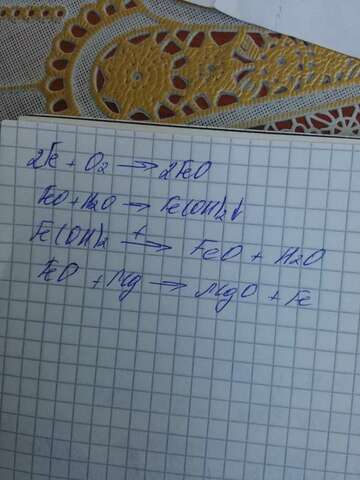 2Fe + O₂ → 2FeO
FeO + H₂O → Fe(OH)₂↓
Fe(OH)₂ →ᵗ FeO + H₂O
FeO + Mg → MgO + Fe